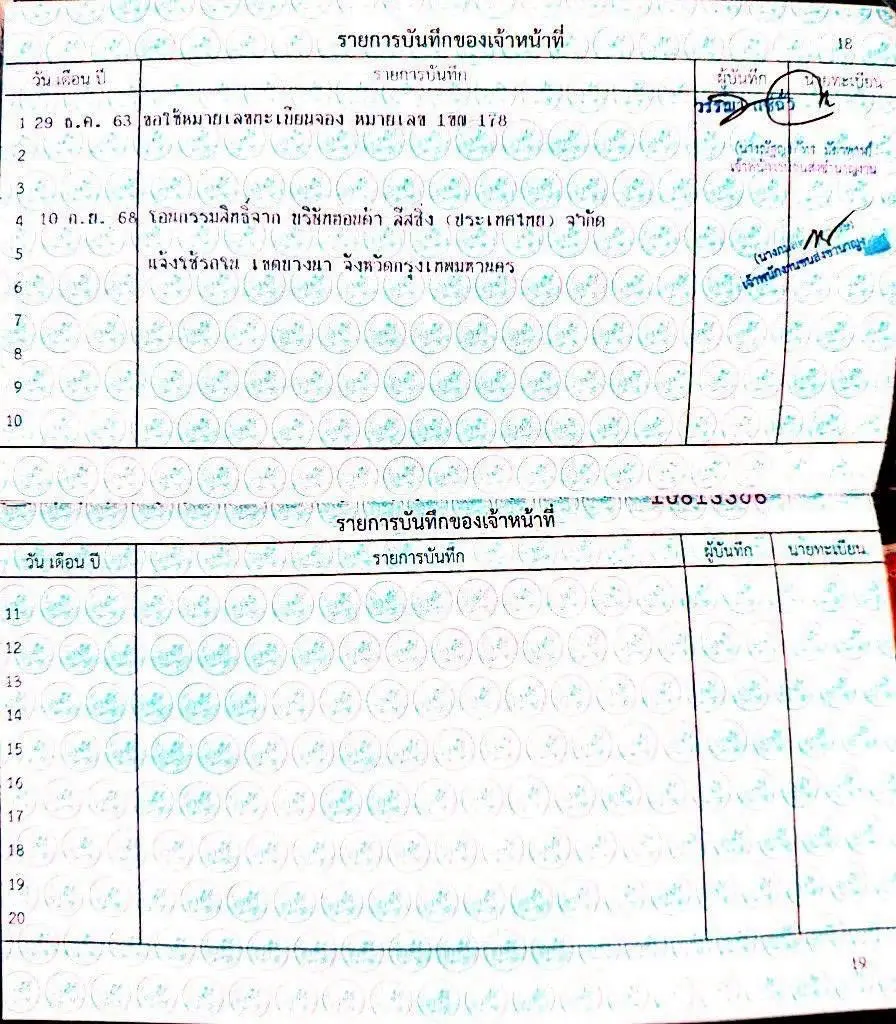 รายการบันทึกของเจ้าหน้าที่
18
วัน เดือน ปี รายการบันทึก ผู้บันทึก นายทะเบียน
1 29 ธ.ค. 63 ขอใช้หมายเลขทะเบียนจอง หมายเลข 1ขฌ 178
2
3
4 10 ก.ย. 68 โอนกรรมสิทธิ์จาก บริษัทฮอนด้า ลีสซิ่ง (ประเทศไทย) จำกัด
5 แจ้งใช้รถใน เขตบางนา จังหวัดกรุงเทพมหานคร
6
7
8
9
10
10813306
รายการบันทึกของเจ้าหน้าที่
วัน เดือน ปี รายการบันทึก ผู้บันทึก นายทะเบียน
11
12
13
14
15
16
17
18
19
20
19